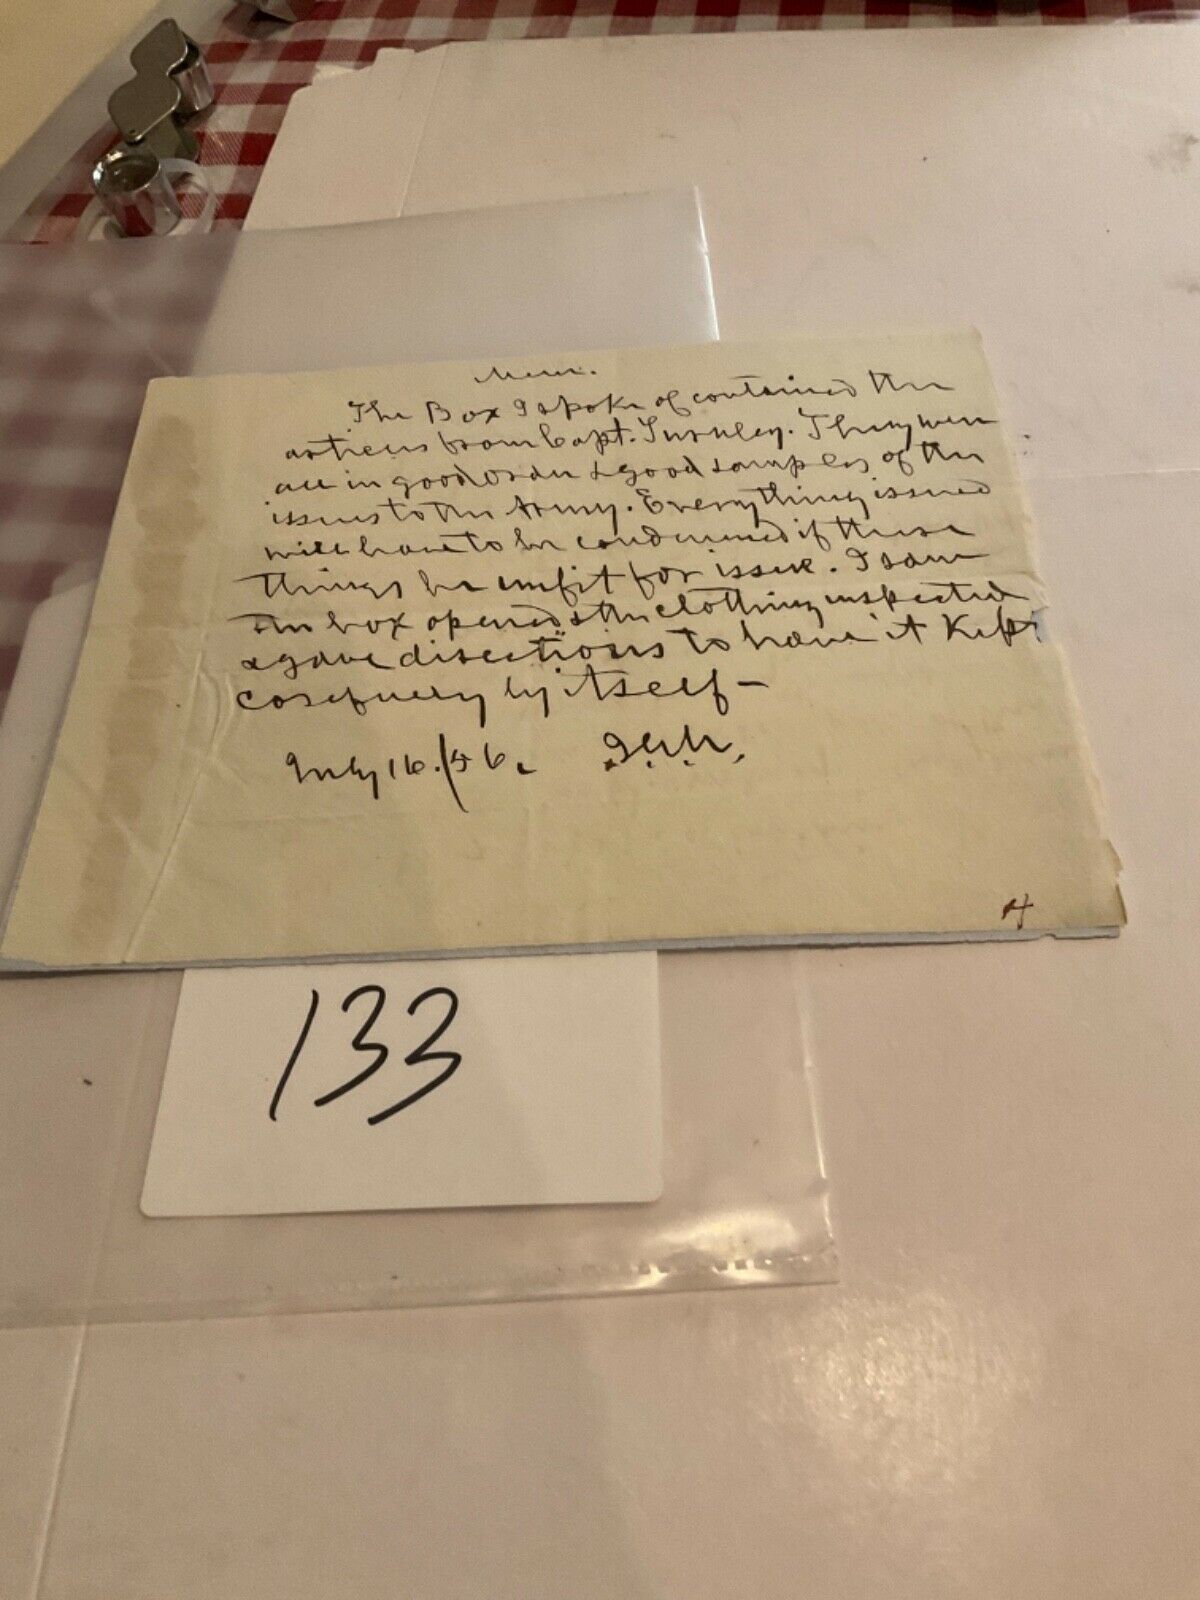 Mem.
The Box I spoke of contained the
articles from Capt. Turnley. They were
all in good order & good samples of the
issues to the Army. Everything issued
will have to be condemned if these
things be unfit for issue. I saw
the box opened & the clothing inspected
& gave directions to have it kept
carefully by itself—
July 16./56.
4
133